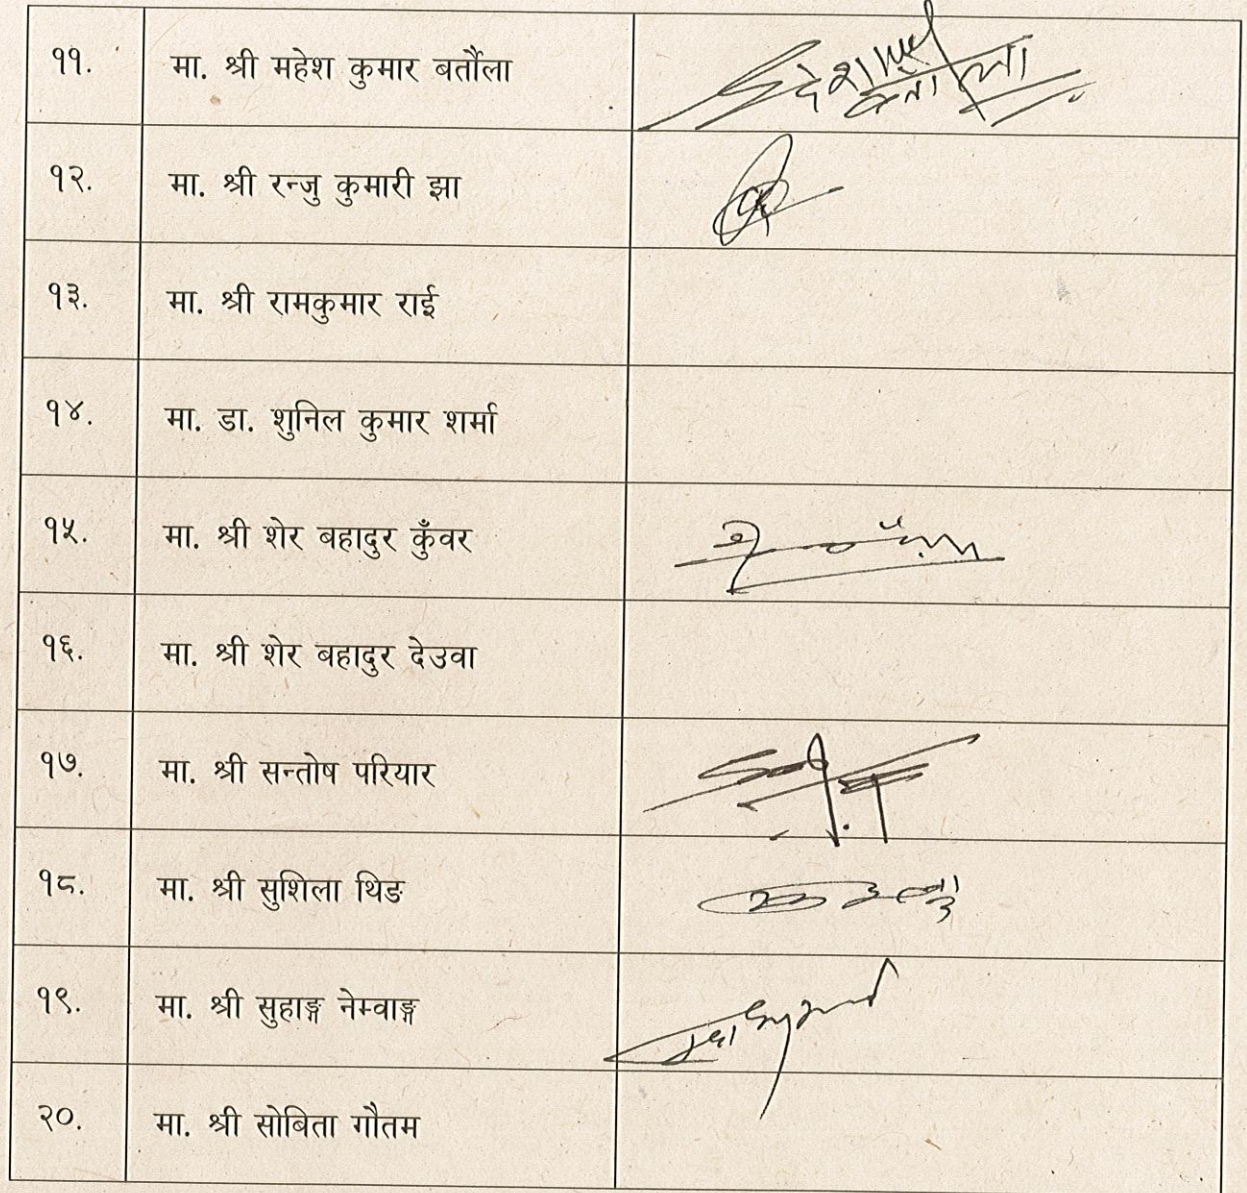 ११. मा. श्री महेश कुमार बर्तौला
१२. मा. श्री रन्जु कुमारी झा
१३. मा. श्री रामकुमार राई
१४. मा. डा. शुनिल कुमार शर्मा
१५. मा. श्री शेर बहादुर कुँवर
१६. मा. श्री शेर बहादुर देउवा
१७. मा. श्री सन्तोष परियार
१८. मा. श्री सुशिला थिङ
१९. मा. श्री सुहाङ्ग नेम्वाङ्ग
२०. मा. श्री सोबिता गौतम